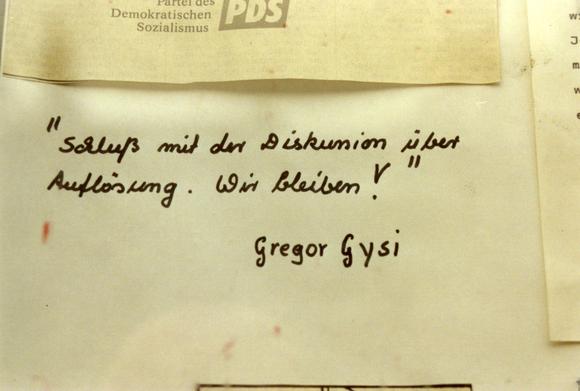 Partei des
Demokratischen
Sozialismus
PDS
"Schluß mit der Diskussion über
Auflösung. Wir bleiben!"
Gregor Gysi